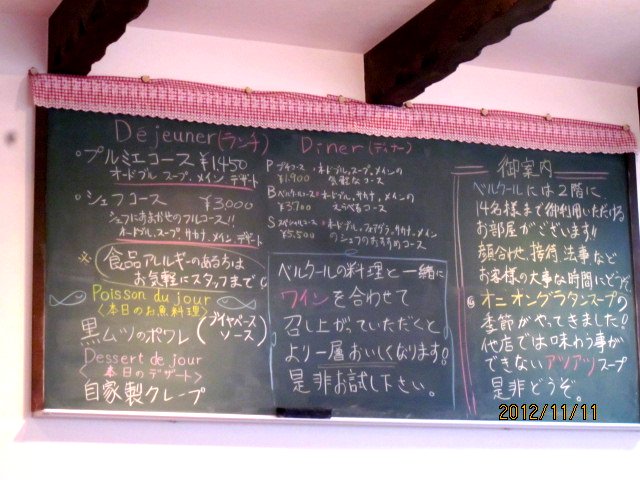 Déjeuner(ランチ)
・プルミエコース ¥1450
オードブル スープ、メイン デザート
・シェフコース ¥3000
シェフにおまかせのフルコース!!
オードブル、スープ、サカナ、メイン、デザート
※食品アレルギーのある方は
お気軽にスタッフまで
Poisson du jour
〈本日のお魚料理〉
黒ムツのポワレ(ブイヤベースソース)
Dessert de jour
〈本日のデザート〉
自家製クレープ
Diner(ディナー)
P プチコース・オードブル、スープ、メインの
¥1,900 気軽なコース
B ベルクールコース・オードブル、サカナ、メインの
¥3700 えらべるコース
S スペシャルコース・オードブル、フォアグラ、サカナ、メイン
¥5,500 のシェフのおすすめコース
ベルクールの料理と一緒に
ワインを合わせて
召し上がっていただくと
より一層おいしくなります!
是非お試し下さい。
御案内
ベルクールには2階に
14名様まで御利用いただける
お部屋がございます!!
顔合わせ、接待、法事など
お客様の大事な時間にどうぞ
オニオングラタンスープの
季節がやってきました!
他店では味わう事が
できないアツアツスープ
是非どうぞ。
2012/11/11